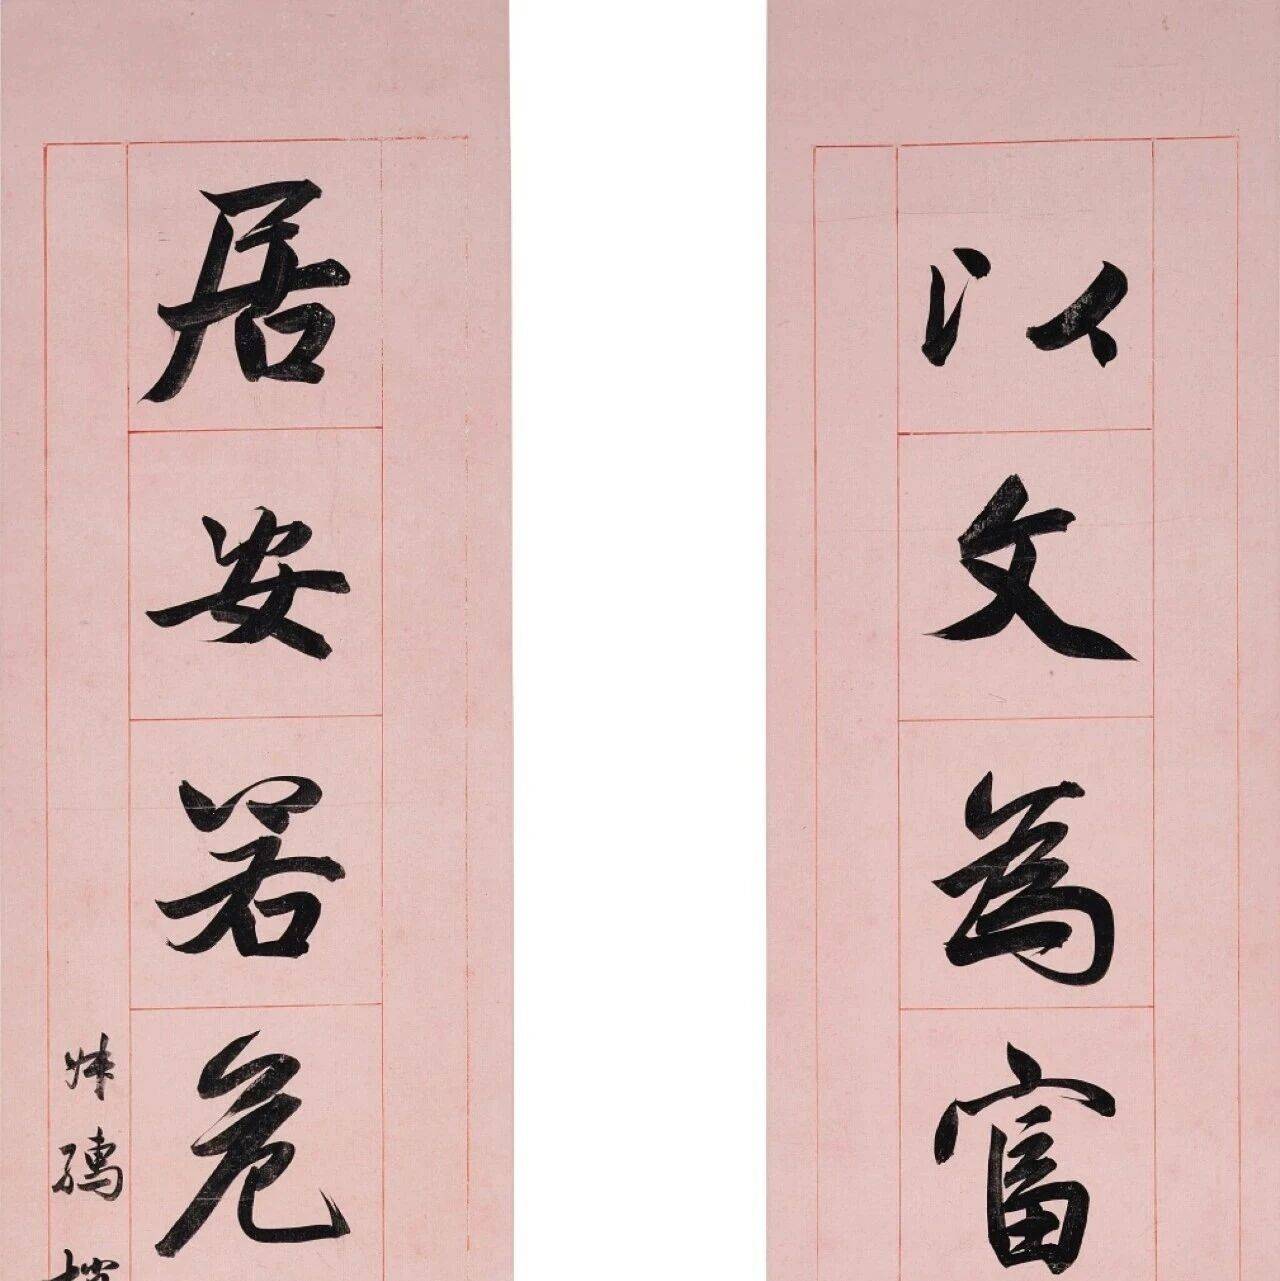 以文為富
居安若危